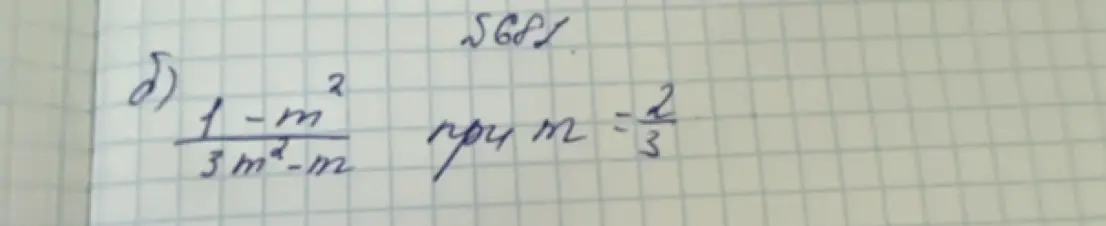 №681.
б) (1 - m²)/(3m² - m) при m = 2/3